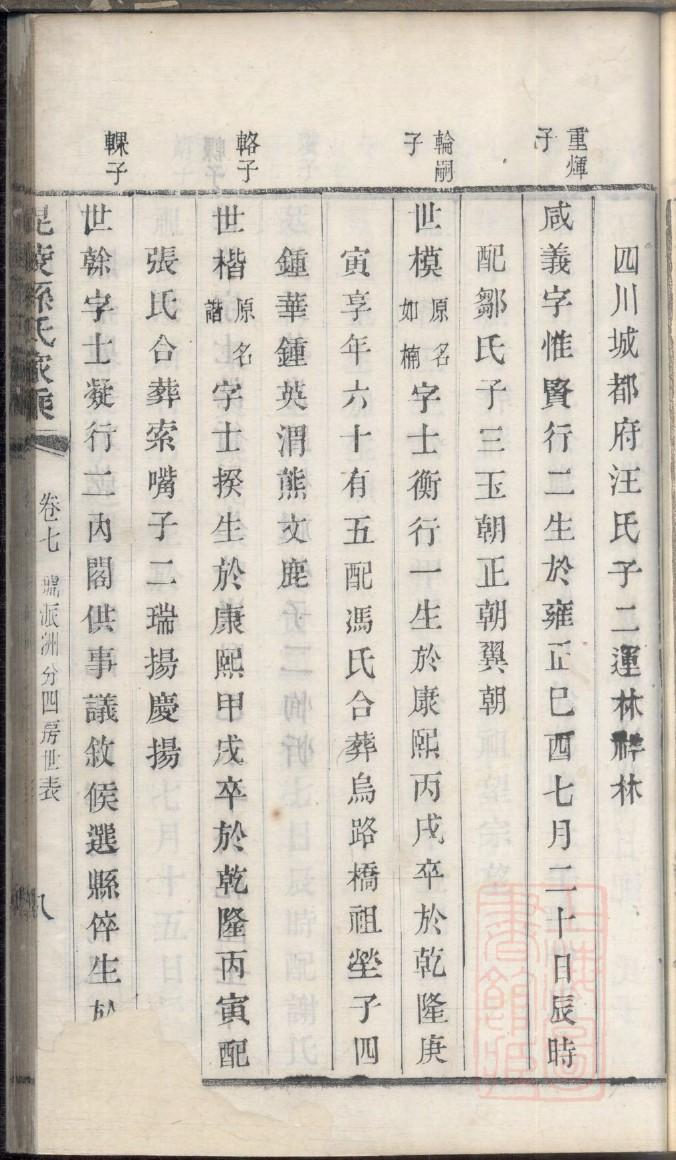 四川城都府汪氏子二運林祥林
重煇子
咸義字惟賢行二生於雍正巳酉七月二十日辰時
配鄒氏子三玉朝正朝翼朝
輪嗣子
世模原名如楠字士衡行一生於康熙丙戌卒於乾隆庚
寅享年六十有五配馮氏合葬烏路橋祖塋子四
鍾華鍾英渭熊文鹿
輅子
世楷原名諧字士揆生於康熙甲戌卒於乾隆丙寅配
張氏合葬索嘴子二瑞揚慶揚
輠子
世榦字士凝行二內閣供事議敘候選縣倅生於
毘陵孫氏家乘
卷七
派洲分四房世表
八